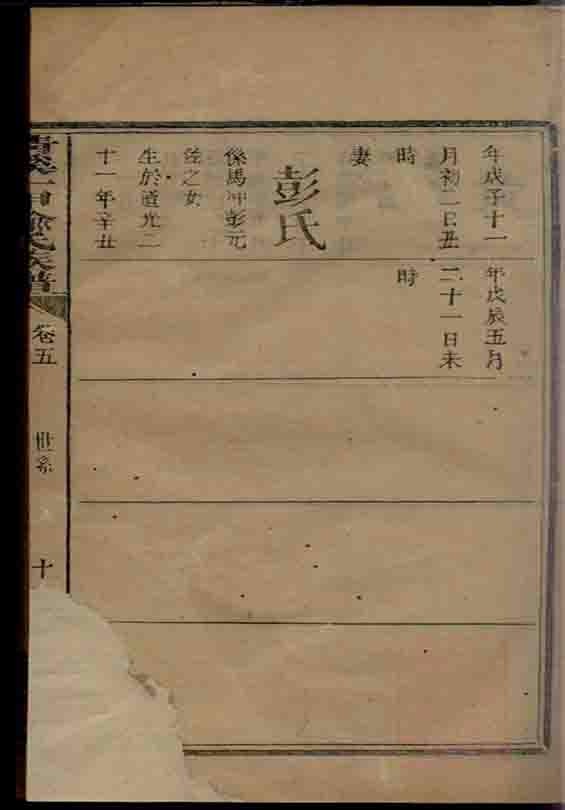 年戊子十一
月初二日丑
時
妻
彭氏
係馬冲彭元
之女
生於道光二
十一年辛丑
年戊辰五月
二十一日未
時
氏族譜
卷五
世系
十